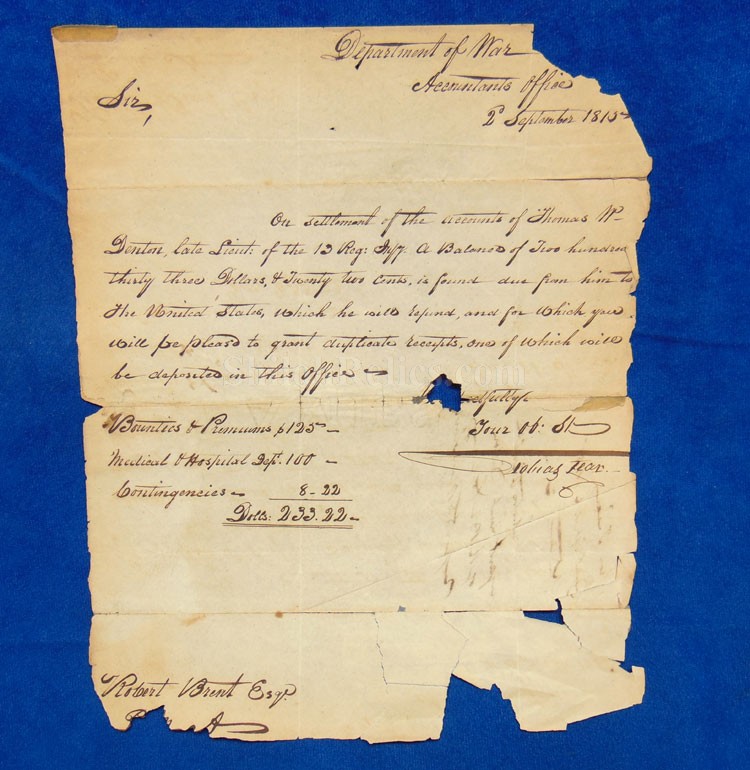 Department of War
Accountants Office
2d September 1815
Sir,
On settlement of the accounts of Thomas W.
Denton, late Lieut: of the 13 Reg: Infy. A Balance of Two hundred
thirty three Dollars, & Twenty two Cents, is found due from him to
the United States, which he will refund, and for which you
will be pleased to grant duplicate receipts, one of which will
be deposited in this Office
Your Ob: St
Tobias Lear
Bounties & Premiums $125
Medical & Hospital Dept. 100
Contingencies 8-22
Dolls: 233.22
Robert Brent Esqr.